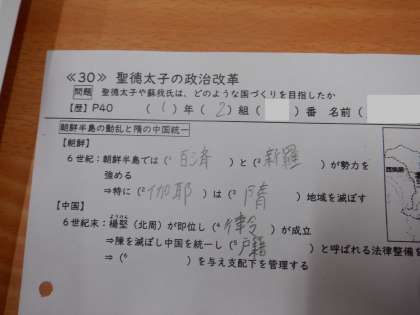 ≪30≫ 聖徳太子の政治改革
問題 聖徳太子や蘇我氏は、どのような国づくりを目指したか
【歴】P40 (1)年(2)組( )番 名前(
朝鮮半島の動乱と隋の中国統一
【朝鮮】
6世紀:朝鮮半島では(¹ 百済 )と(² 新羅 )が勢力を
強める
⇒特に(³ 伽耶 )は(² 隋 )地域を滅ぼす
【中国】
6世紀末:楊堅(ようけん)(北周)が即位し(⁴ 律令 )が成立
⇒陳を滅ぼし中国を統一し(⁵ 戸籍 )と呼ばれる法律整備を
⇒(⁶ )を与え支配下を管理する